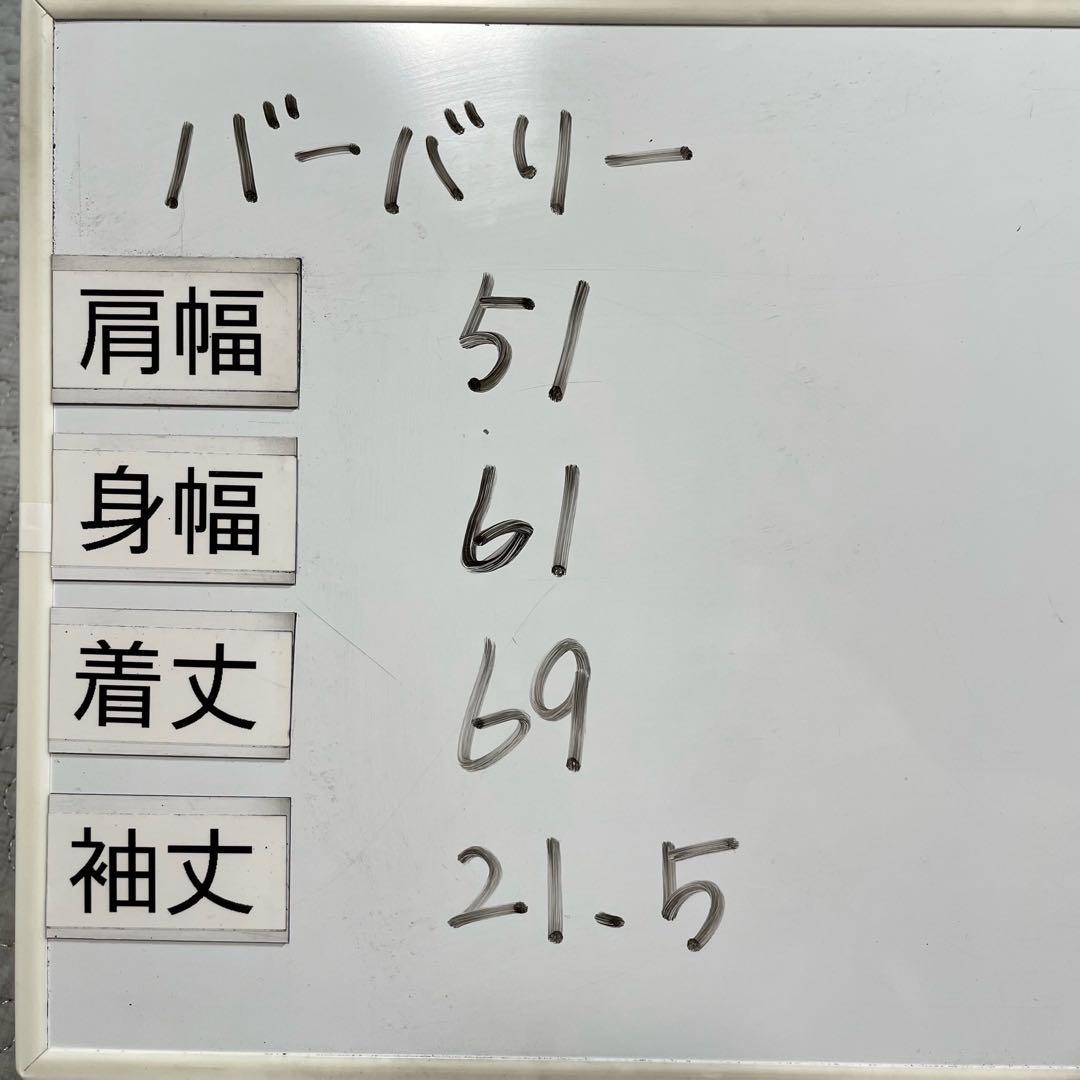 バーバリー
肩幅 51
身幅 61
着丈 69
袖丈 21.5